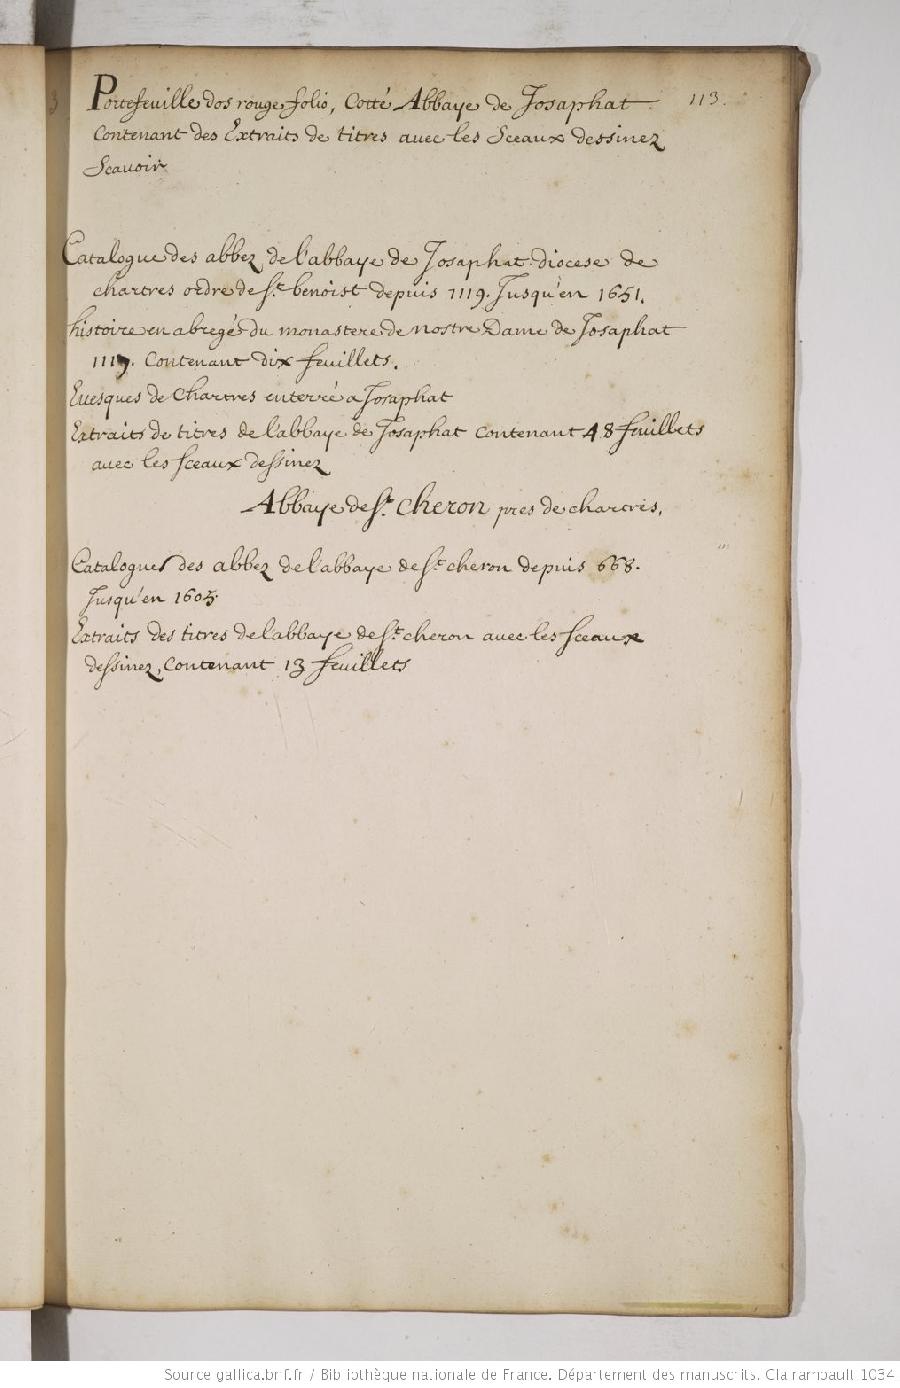 Portefeuille dos rouge folio, Cotté Abbaye de Josaphat 113.
Contenant des Extraits de titres avec les Sceaux dessinez
Scauoir
Catalogue des abbez de l'abbaye de Josaphat diocese de
chartres ordre de St. benoist depuis 1119. Jusqu'en 1651.
histoire en abregé du monastere de nostre Dame de Josaphat
1119. Contenant dix feuillets.
Euesques de Chartres enterré a Josaphat
Extraits de titres de l'abbaye de Josaphat contenant 48 feuillets
auec les sceaux dessinez
Abbaye de St. Cheron pres de chartres.
Catalogues des abbez de l'abbaye de St. cheron depuis 668.
Jusqu'en 1605.
Extraits des titres de l'abbaye de St. cheron auec les sceaux
dessinez, Contenant 13 feuillets
Source gallica.bnf.fr / Bibliothèque nationale de France. Département des manuscrits. Clairambault 1034